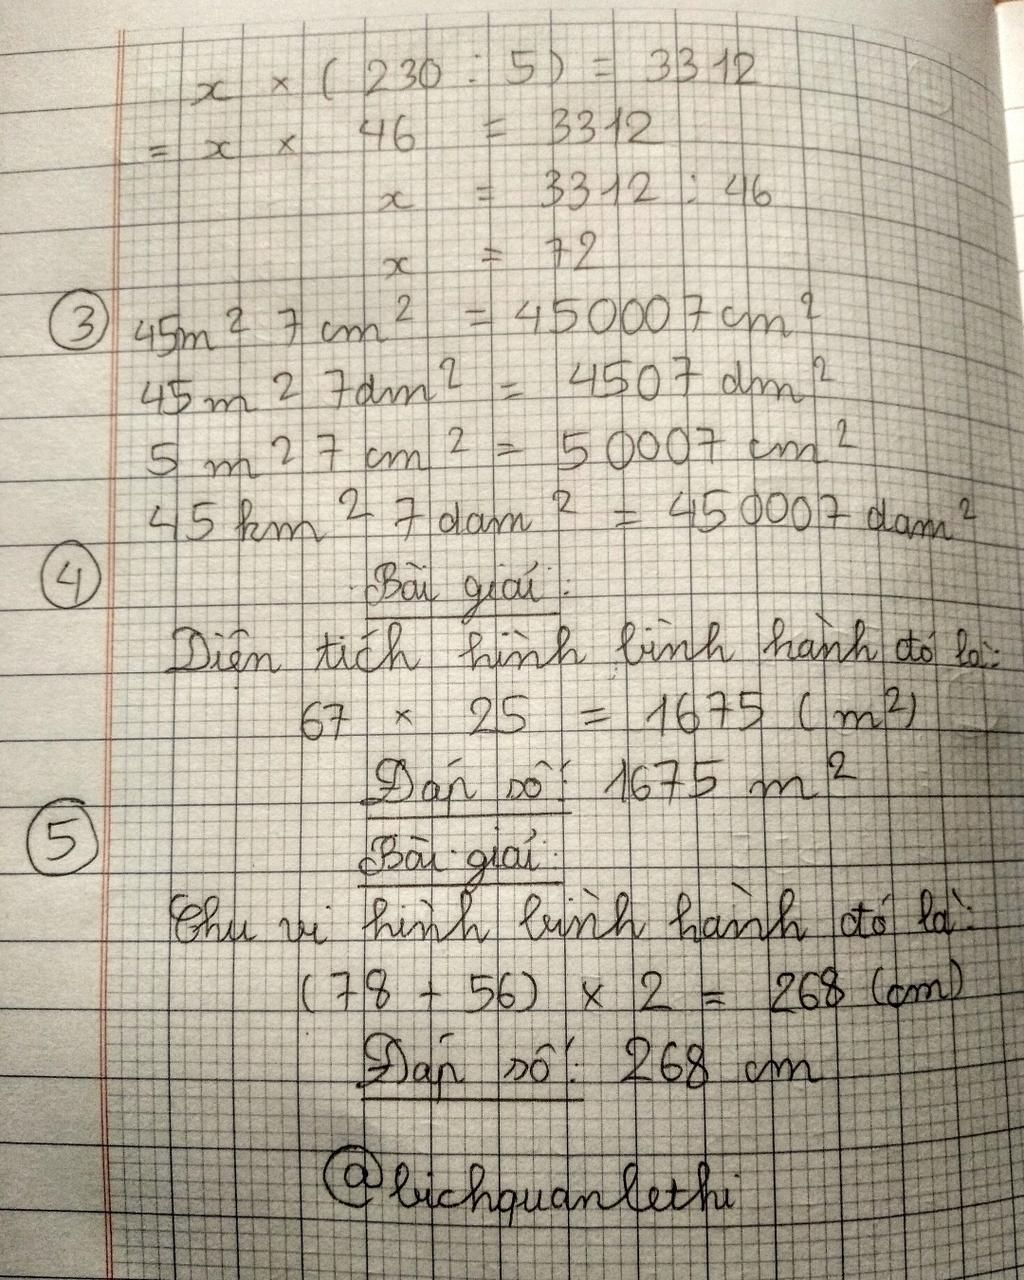 x × ( 230 : 5 ) = 3312
= x × 46 = 3312
x = 3312 : 46
x = 72
③ 45m² 7 cm² = 450007 cm²
45 m² 7dm² = 4507 dm²
5 m² 7 cm² = 50007 cm²
45 km² 7 dam² = 450007 dam²
④ Bài giải:
Diện tích hình bình hành đó là:
67 × 25 = 1675 (m²)
Đáp số: 1675 m²
⑤ Bài giải:
Chu vi hình bình hành đó là:
(78 + 56) × 2 = 268 (cm)
Đáp số: 268 cm
@bichquanlethi